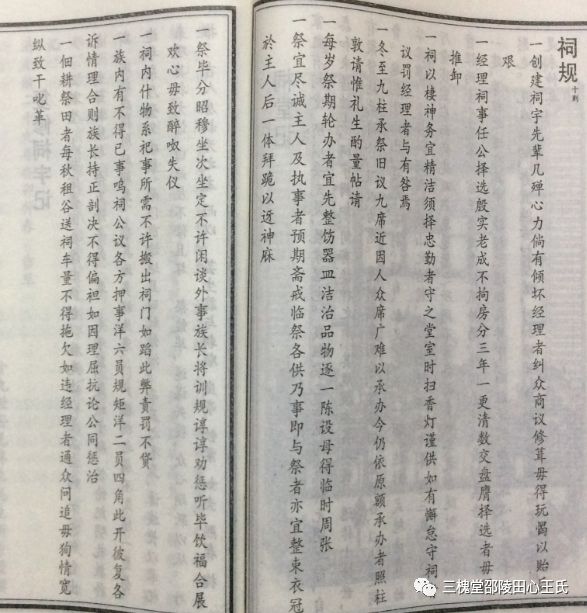 祠规 十则
一创建祠宇先辈几殚心力倘有倾坏经理者纠众商议修葺毋得玩愒以贻
艰
一经理祠事任公择选殷实老成不拘房分三年一更清数交盘膺择选者毋
推卸
一祠以棲神务宜精洁须择忠勤者守之堂室时扫香灯谨供如有懈怠守祠
议罚经理者与有咎焉
一冬至九柱承祭旧议九席近因人众席广难以承办今仍依原额承办者照柱
敦请惟礼生酌量帖请
一每岁祭期轮办者宜先整饬器皿洁治品物逐一陈设毋得临时周张
一祭宜尽诚主人及执事者预期斋戒临祭各供乃事即与祭者亦宜整束衣冠
於主人后一体拜跪以迓神庥
一祭毕分昭穆坐次坐定不许闲谈外事族长将训规谆谆劝惩听毕饮福合展
欢心毋致醉呶失仪
一祠内什物系祀事所需不许搬出祠门如蹈此弊责罚不贷
一族内有不得已事鸣祠公议各方押事洋六员规矩洋二员四角此开彼复各
诉情理合则族长持正剖决不得偏袒如因理屈抗论公同惩治
一佃耕祭田者每秋租谷送祠车量不得拖欠如违经理者通众问追毋狥情宽
纵致干叱革
三槐堂邵陵田心王氏